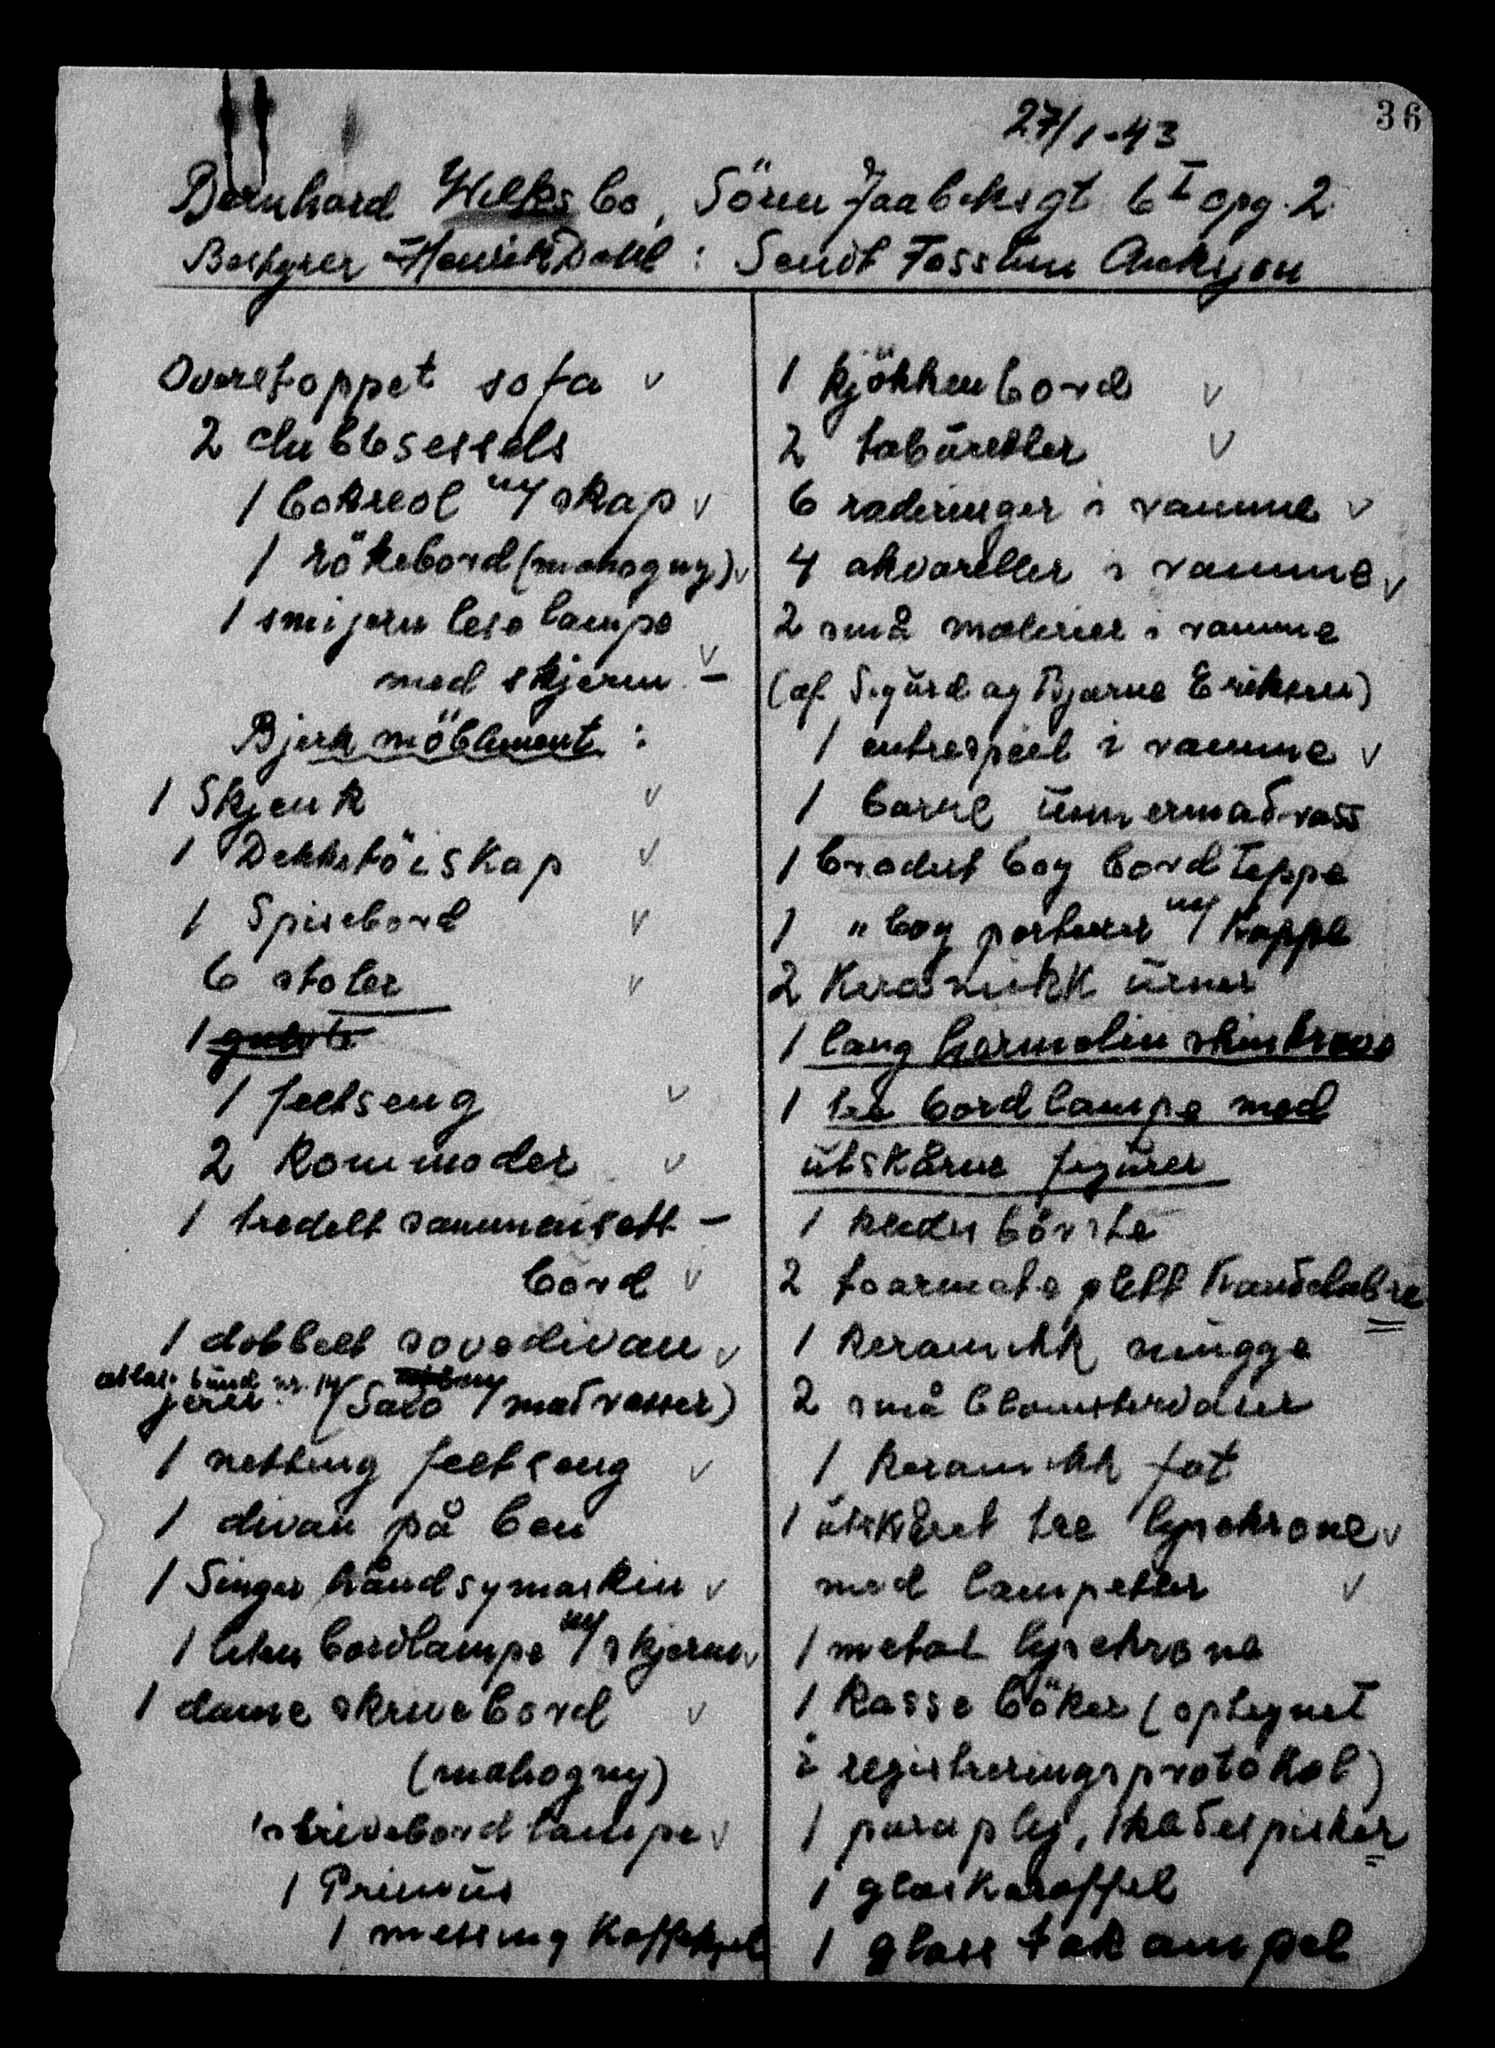 36
27/1-43
Bernhard Wilks bo, Sören Jaabeksgt 6 I opg. 2
Bestyrer Henrik Dahl : Sendt Fossum Auksjon
Overstoppet sofa v
2 clubbsessels
1 bokreol m/ skap v
1 rökebord (mahogny) v
1 smijern lese lampe
med skjerm - v
Bjerk möblement :
1 Skjenk v
1 Dekketöiskap v
1 Spisebord v
6 stoler v
1
1 feltseng v
2 Kommoder v
1 tredelt sammensatt -
bord v
1 dobbelt sovedivan v
atlas bund nr. 14
/ madrasser)
1 netting feltseng v
1 divan på ben
1 Singer håndsymaskin v
1 liten bordlampe m/ skjerm v
1 dame skrivebord v
(mahogny)
1 skrivebord lampe v
1 Primüs
1 messing Kaffekjel
1 kjökkenbord v
2 tabüretter v
6 raderinger i ramme v
4 akvareller i ramme v
2 små malerier i ramme
(af Sigürd og Bjarne Eriksen)
1 entrespeil i ramme v
1 barne ünnermadrass
1 brodert boy bord teppe
1 " boy portierer m/ Kappe
2 Keramikk ürner
1 lang hermelin skinkrave
1 tre bordlampe med
ütskårne figürer
1 kleder börste
2 toarmete plett Kandelabre
1 keramikk mügge
2 små blomstervaser
1 keramikk fat
1 ütskåret tre lysekrone v
med lampetter v
1 metal lysekrone
1 Kasse böker (optegnet
i registreringsprotokol)
1 paraply, 1 kladespisker
1 glaskaraffel
1 glass takampel